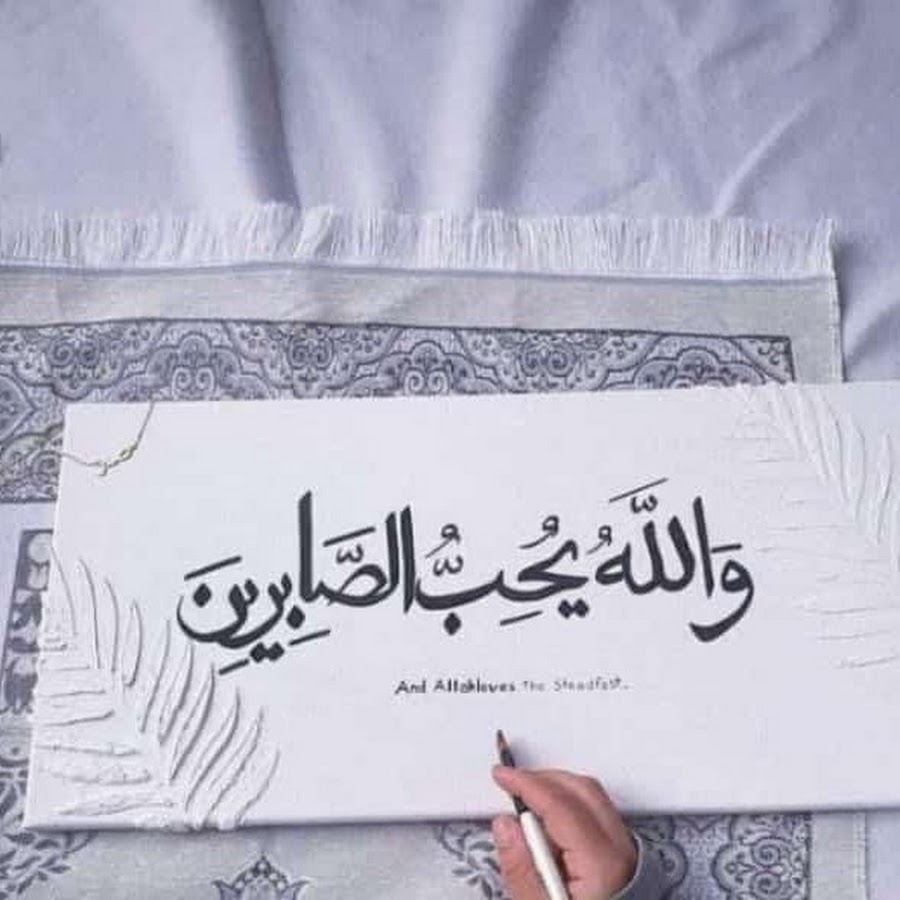 وَاللَّهُ يُحِبُّ الصَّابِرِينَ
And Allah loves The Steadfast.